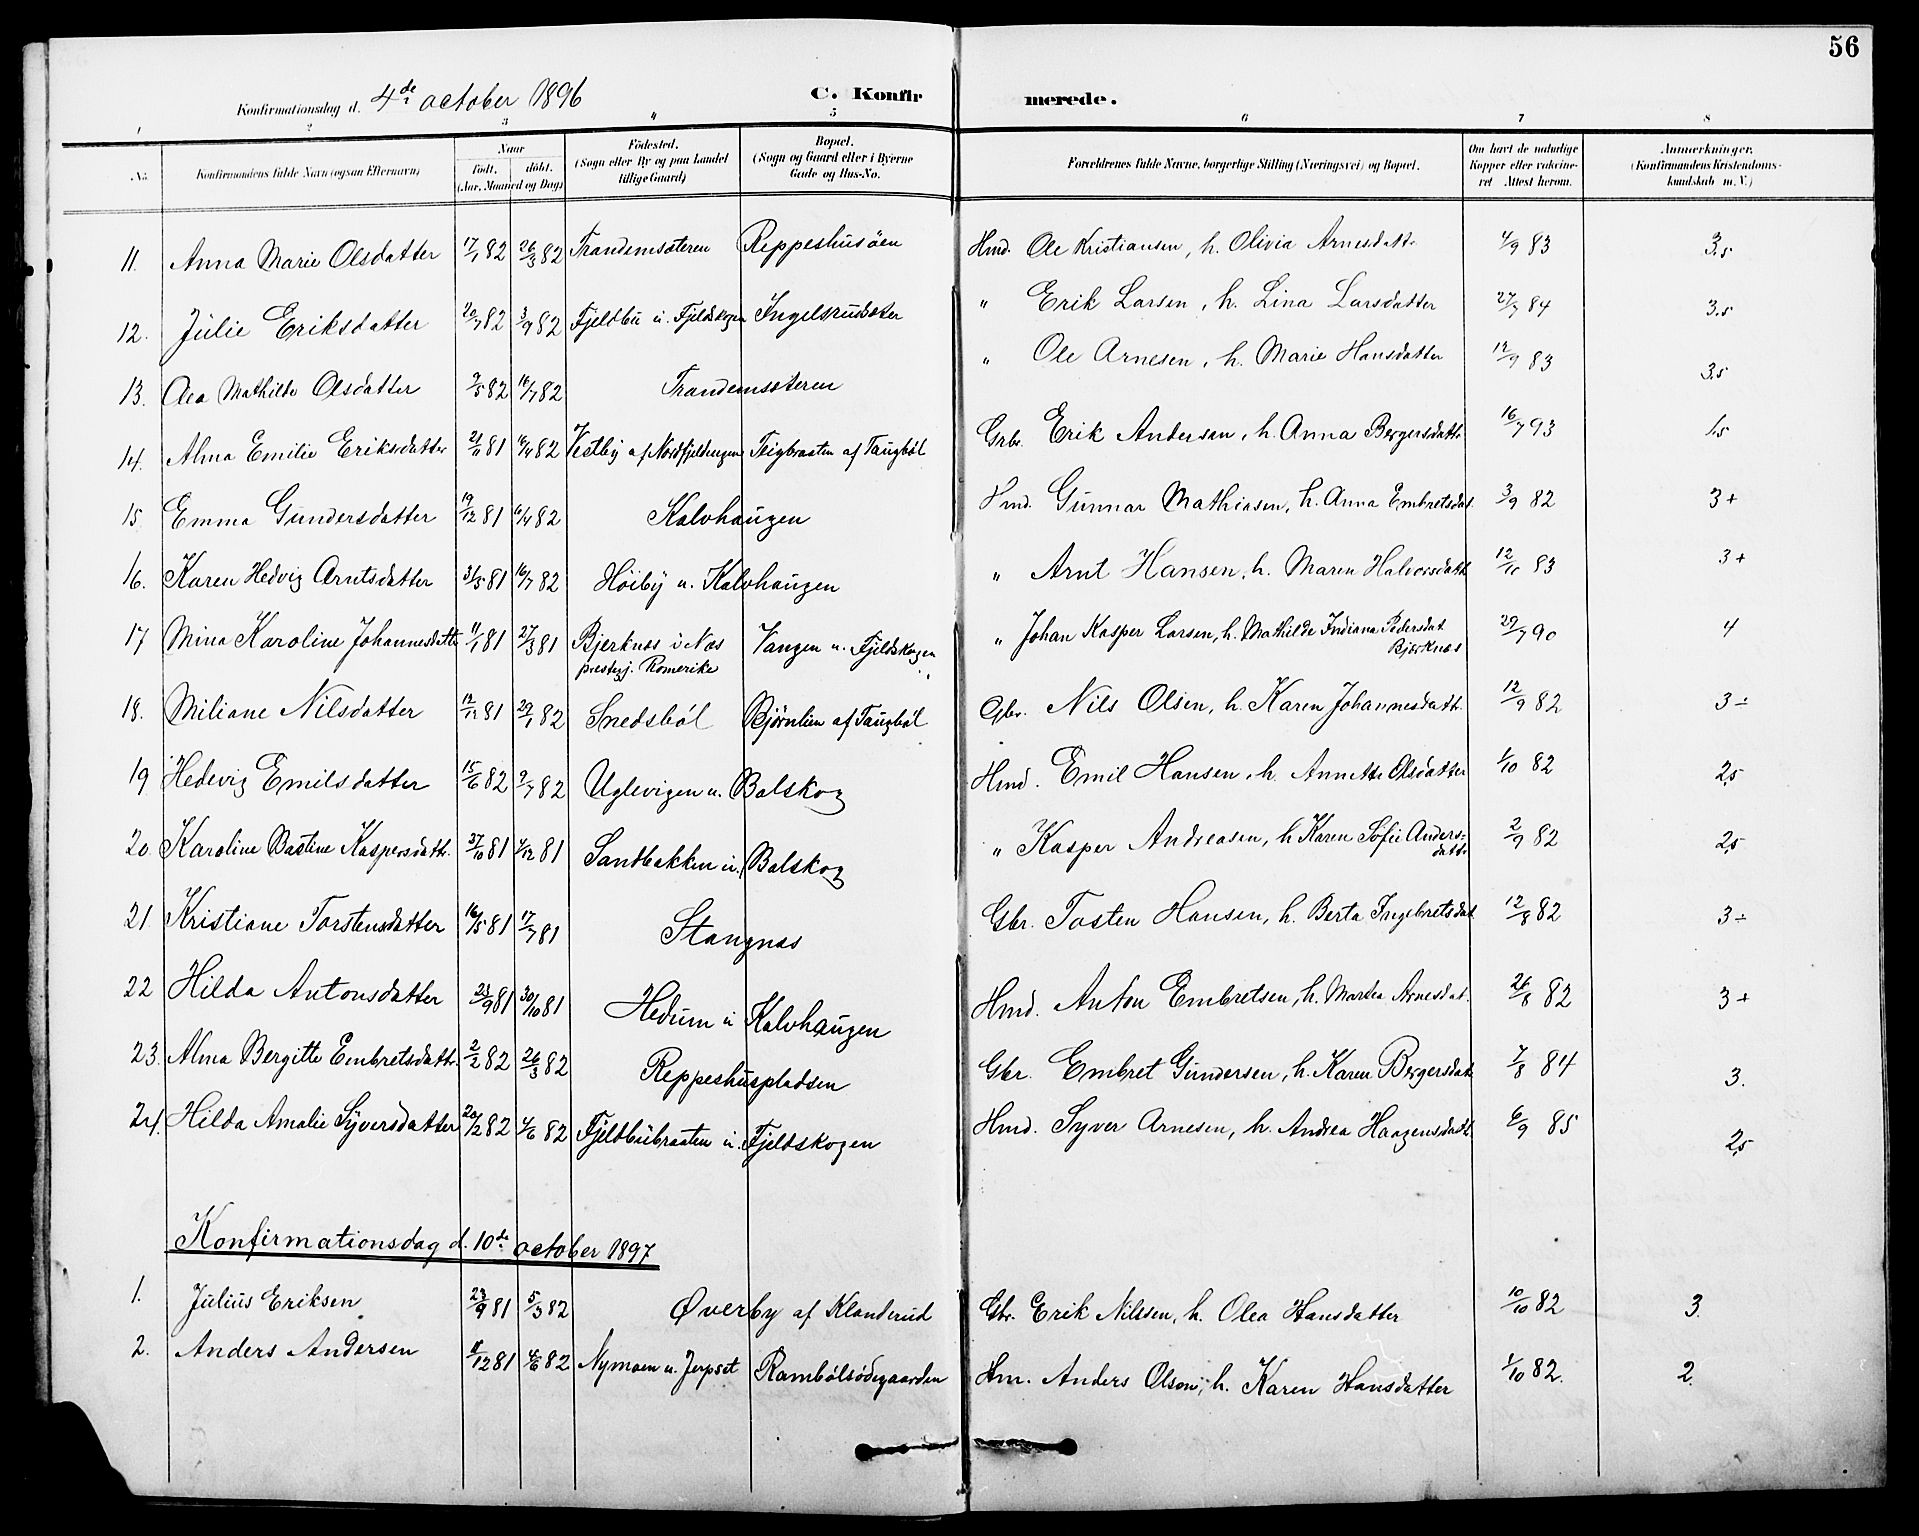 56
Konfirmationsdag d. 4de october 1896 C. Konfirmerede.
1 2 3 4 5 6 7 8
No. Konfirmandens fulde Navn (ogsaa Efternavn) Naar født. døbt. (Aar, Maaned og Dag) Fødested. (Sogn eller By og paa Landet tillige Gaard) Bopæl. (Sogn og Gaard eller i Byerne Gade og Hus-No. Forældrenes fulde Navne, borgerlige Stilling (Næringsvei) og Bopæl. Om havt de naturlige Kopper eller vakcineret Attest herom. Anmerkninger. (Konfirmandens Kristendomskundskab m. V.)
11. Anna Marie Olsdatter 17/1 82 26/3 82 Trandemsæteren Reppeshusöen Hmd. Ole Kristiansen, h. Olivia Arnesdatt. 4/9 83 3,5
12. Julie Eriksdatter 20/7 82 3/9 82 Fjeldbu u. Fjeldskogen Ingelsrudsæter " Erik Larsen, h. Lina Larsdatter 27/7 84 3,5
13. Oea Mathilde Olsdatter 9/5 82 16/7 82 Trandemsæteren " Ole Arnesen, h. Marie Hansdatter 12/9 83 3,5
14. Alma Emilie Eriksdatter 21/11 81 16/4 82 Vestby af Nordfjeldengen Teigbraaten af Taugböl Grbr. Erik Andersen, h. Anna Bergersdatt. 16/7 93 1,5
15. Emma Gundersdatter 19/12 81 16/4 82 Kalvhaugen Hmd. Gunnar Mathiasen, h. Anna Embretsdat. 3/9 82 3+
16. Karen Hedvig Arntsdatter 31/5 81 16/7 82 Höiby u. Kalvhaugen " Arnt Hansen, h. Maren Halvorsdatt. 12/10 83 3+
17 Mina Karoline Johannesdatter 11/1 81 27/3 81 Bjerknæs i Næs prestegj. Romerike Vangen u. Fjeldskogen " Johan Kasper Larsen, h. Mathilde Indiana Pedersdat. Bjærknæs 29/7 90 4
18. Miliane Nilsdatter 12/12 81 29/1 82 Snedsböl Björnlien af Taugböl Gbr. Nils Olsen, h. Karen Johannesdatt. 12/9 82 3÷
19 Hedevig Emilsdatter 15/6 82 9/7 82 Uglevigen u. Balskog Hmd. Emil Hansen, h. Annette Olsdatter 1/10 82 2,5
20. Karoline Bastine Kaspersdatt. 27/10 81 4/12 81 Sandbakken u. Balskog " Kasper Andreasen, h Karen Sofie Anders-datt. 2/9 82 2,5
21 Kristiane Torstensdatter 16/5 81 17/7 81 Stangnæs Gbr. Tosten Hansen, h. Berta Ingebretsdat. 12/8 82 3÷
22 Hilda Antonsdatter 23/9 81 30/10 81 Hedum u Kalvhaugen Hmd. Anton Embretsen, h. Martea Arnesdat. 26/8 82 3+
23. Alma Bergitte Embretsdatt. 2/2 82 26/3 82 Reppeshuspladsen Gbr. Embret Gundersen, h. Karen Bergersdat. 7/8 84 3.
24. Hilda Amalie Syversdatter 20/2 82 4/6 82 Fjeldbubraaten u. Fjeldskogen Hmd. Syver Arnesen, h. Andrea Haagensdatt. 6/9 85 2,5
Konfirmationsdag d. 10de october 1897
1. Julius Eriksen 23/9 81 5/3 82 Øverby af Klanderud Gbr. Erik Nilssen, h. Olea Hansdatter 10/10 82 3.
2. Anders Andersen /12 81 4/6 82 Nymoen u. Jerpset Rambölsödegaarden Hm. Anders Olson, h. Karen Hansdatter 1/10 82. 2.